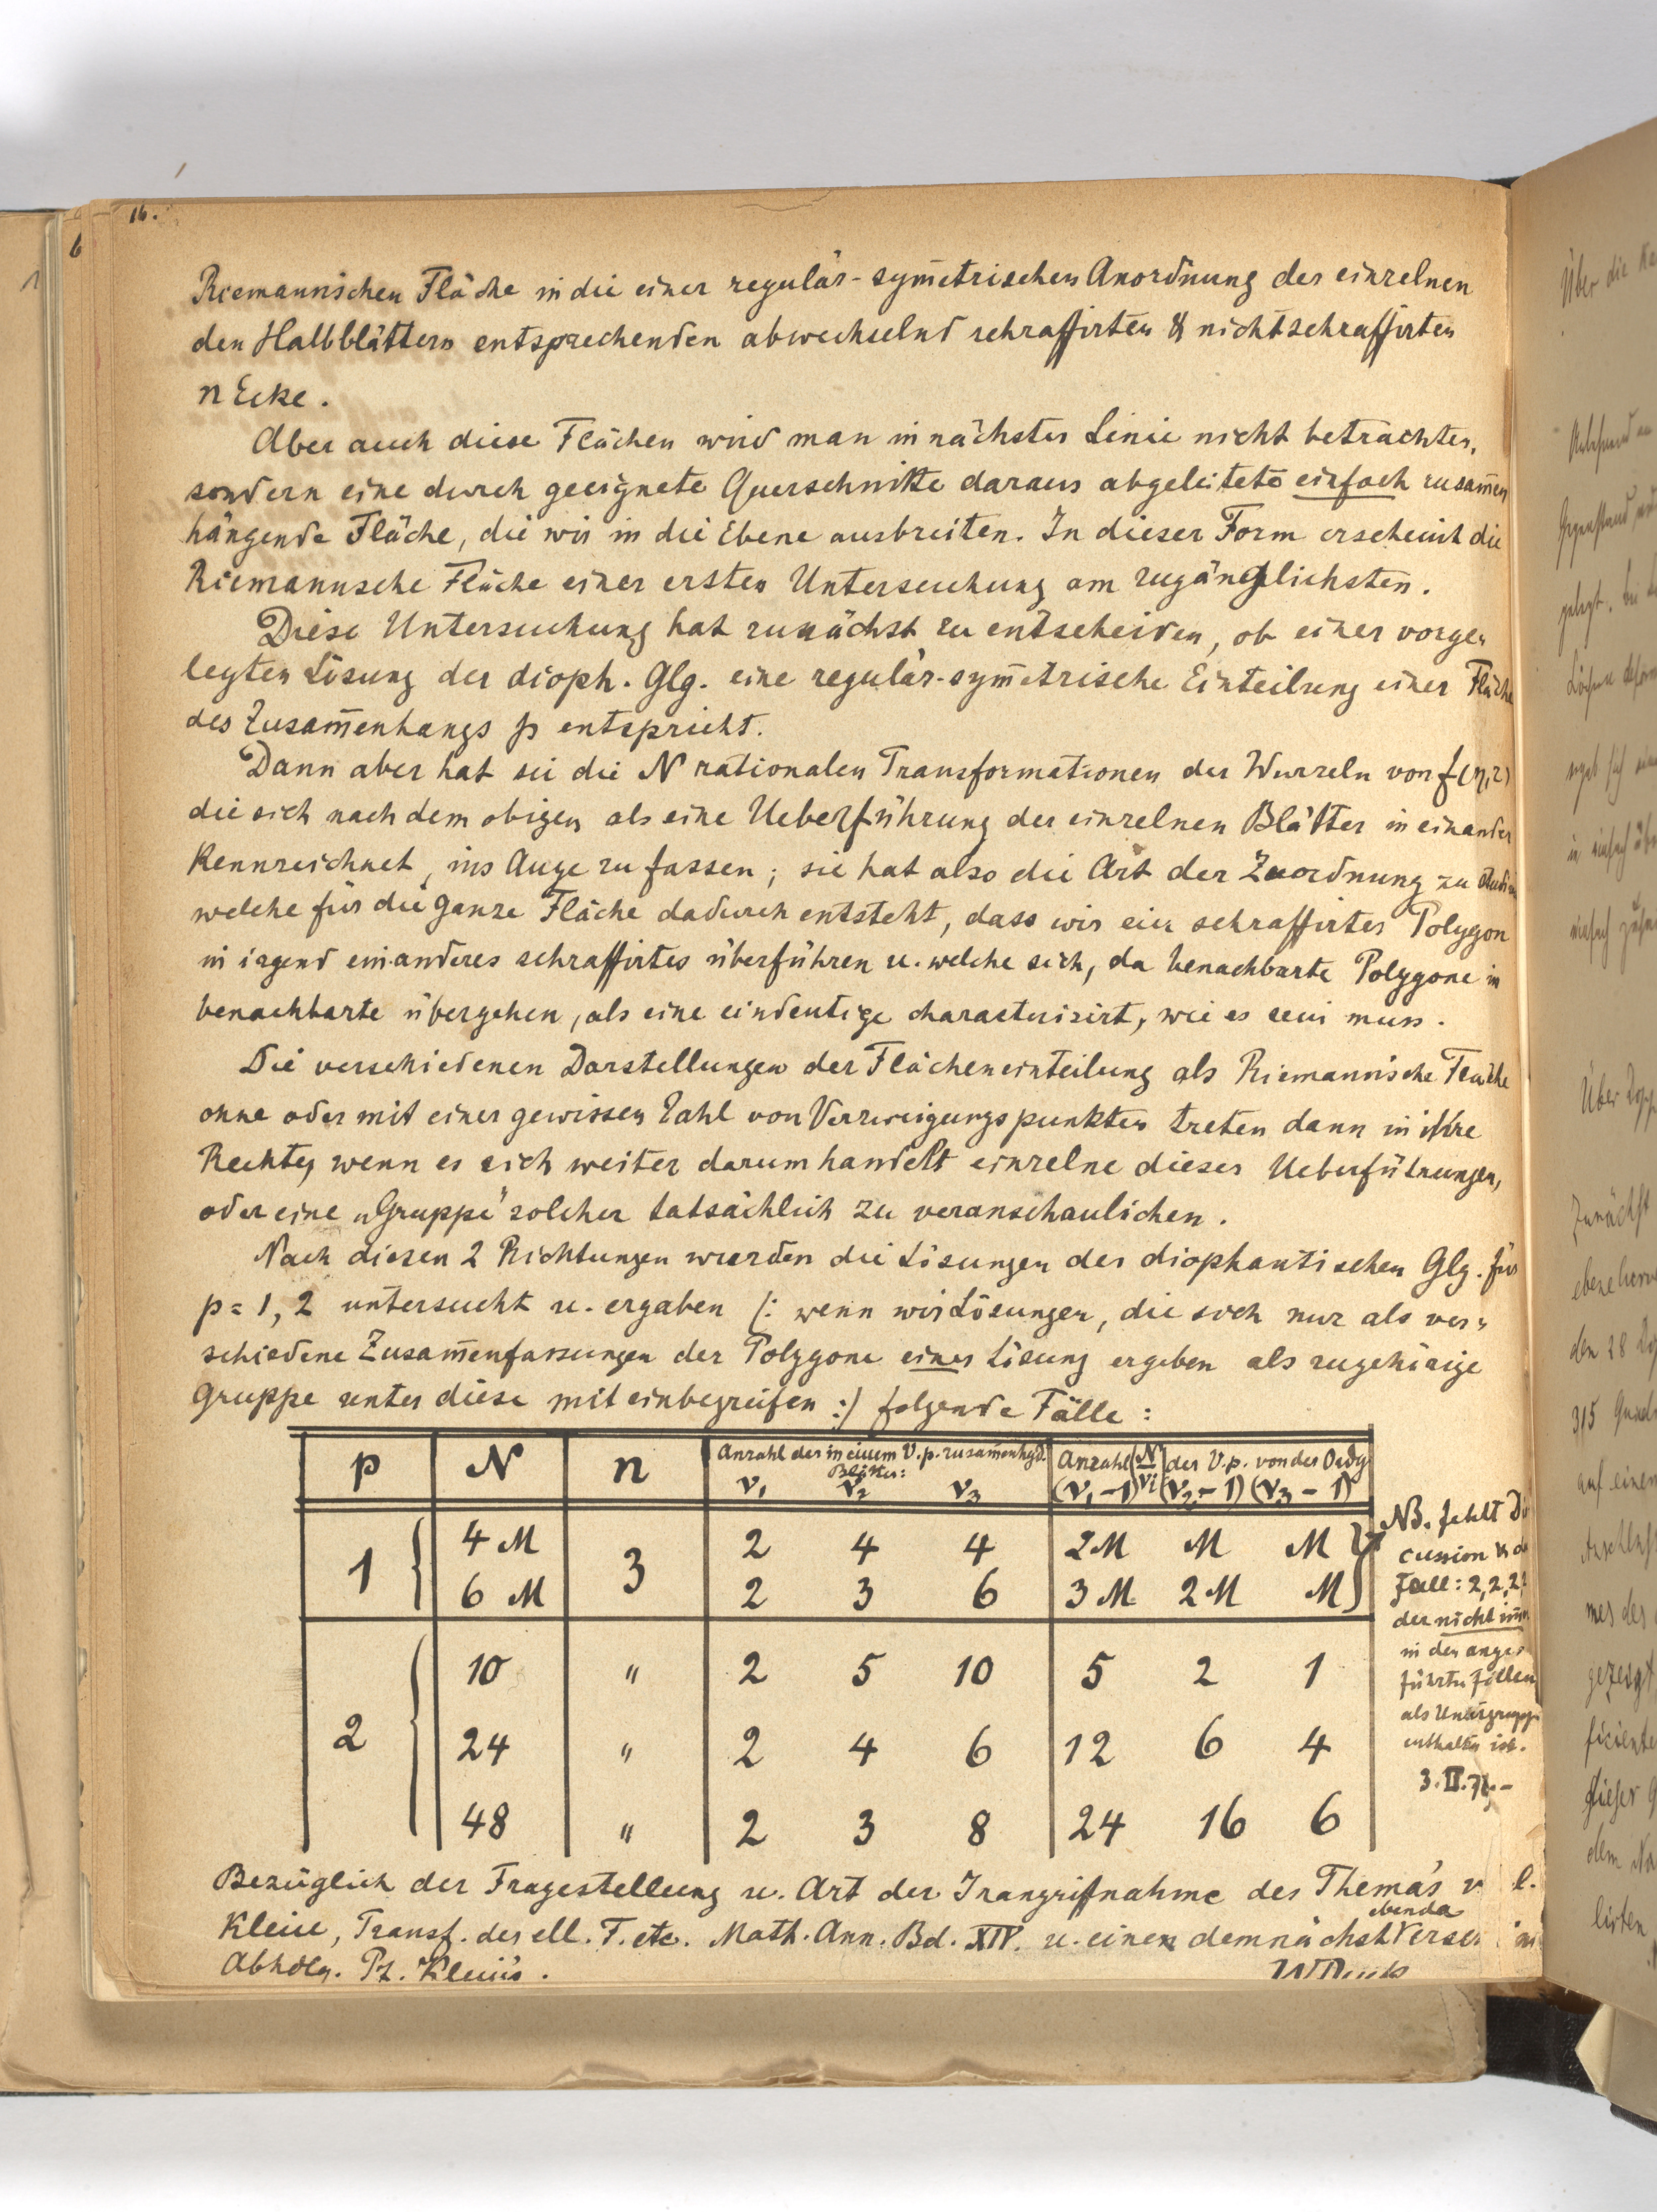 16.
Riemannschen Fläche in die einer regulär-sym̅etrischen Anordnung der einzelnen
den Halbblättern entsprechenden abwechselnd schraffirten & nichtschraffirten
n Ecke.
Aber auch diese Flächen wird man in nächster Linie nicht betrachten,
sondern eine durch geeignete Querschnitte daraus abgeleitete einfach zusam̅en
hängende Fläche, die wir in die Ebene ausbreiten. In dieser Form erscheint die
Riemannsche Fläche einer ersten Untersuchung am zugänglichsten.
Diese Untersuchung hat zunächst zu entscheiden, ob einer vorge-
legten Lösung der dioph. Glg. eine regulär-sym̅etrische Einteilung einer Fläche
des Zusam̅enhangs p entspricht.
Dann aber hat sie die N rationalen Transformationen der Wurzeln von f(η,z)
die sich nach dem obigen als eine Ueberführung der einzelnen Blätter in einander
kennzeichnet, ins Auge zu fassen; sie hat also die Art der Zuordnung zu
welche für die ganze Fläche dadurch entsteht, dass wir ein schraffirtes Polygon
in irgend ein anderes schraffirtes überführen u. welche sich, da benachbarte Polygone in
benachbarte übergehen, als eine eindeutige characterisirt, wie es sein muss.
Die verschiedenen Darstellungen der Flächeneinteilung als Riemann'sche Fläche
ohne oder mit einer gewissen Zahl von Verzweigungspunkten treten dann in ihre
Rechte, wenn es sich weiter darum handelt einzelne dieser Ueberführungen,
oder eine „Gruppe" solcher tatsächlich zu veranschaulichen.
Nach diesen 2 Richtungen wurden die Lösungen der diophantischen Glg. für
p = 1, 2 untersucht u. ergaben /: wenn wir Lösungen, die sich nur als ver-
schiedene Zusam̅enfassungen der Polygone einer Lösung ergeben als zugehörige
Gruppe unter diese mit einbegreifen :/ folgende Fälle:
p N n Anzahl der in einem V.p. zusam̅enhgd. Blätter: ν₁ ν₂ ν₃ Anzahl (N/νi) der V.p. von der Ordg (ν₁-1) (ν₂-1) (ν₃-1)
1 4 M 3 2 4 4 2M M M
6 M 2 3 6 3M 2M M
2 10 " 2 5 10 5 2 1
24 " 2 4 6 12 6 4
48 " 2 3 8 24 16 6
NB. fehlt
cussion
Fall: 2, 2, 2,
der nicht
in den ange-
führten Fällen
als Untergruppe
enthalten ist.
Bezüglich der Fragestellung u. Art der Inangriffnahme des Thema's
Klein, Transf. der ell. F. etc. Math. Ann. Bd. XIV. u. einen demnächst ebenda
Abhdlg. Pf. Klein's.